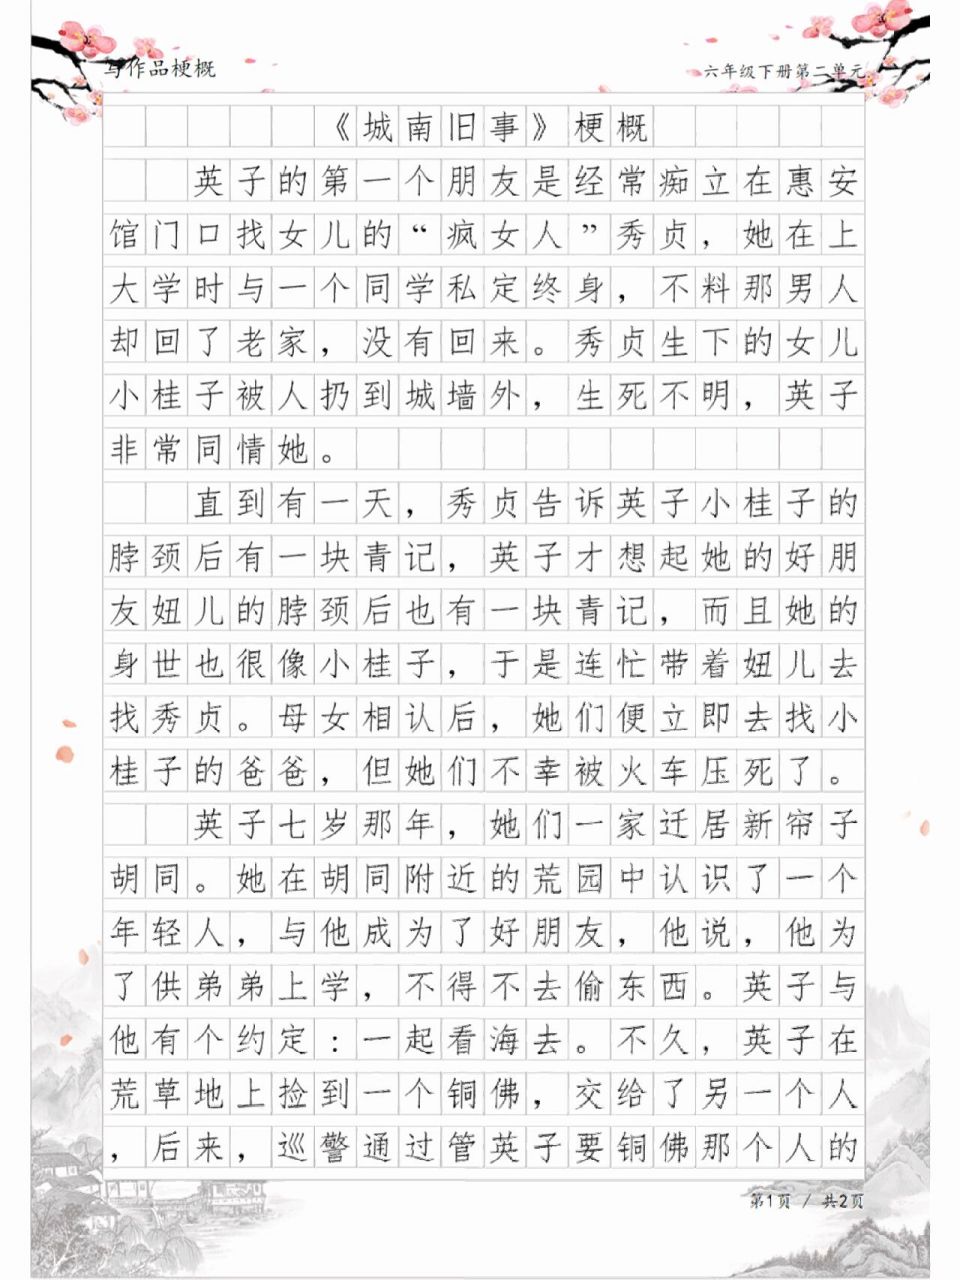 写作品梗概
六年级下册第二单元
《城南旧事》梗概
英子的第一个朋友是经常痴立在惠安
馆门口找女儿的“疯女人”秀贞，她在上
大学时与一个同学私定终身，不料那男人
却回了老家，没有回来。秀贞生下的女儿
小桂子被人扔到城墙外，生死不明，英子
非常同情她。
直到有一天，秀贞告诉英子小桂子的
脖颈后有一块青记，英子才想起她的好朋
友妞儿的脖颈后也有一块青记，而且她的
身世也很像小桂子，于是连忙带着妞儿去
找秀贞。母女相认后，她们便立即去找小
桂子的爸爸，但她们不幸被火车压死了。
英子七岁那年，她们一家迁居新帘子
胡同。她在胡同附近的荒园中认识了一个
年轻人，与他成为了好朋友，他说，他为
了供弟弟上学，不得不去偷东西。英子与
他有个约定：一起看海去。不久，英子在
荒草地上捡到一个铜佛，交给了另一个人
，后来，巡警通过管英子要铜佛那个人的
第1页 / 共2页